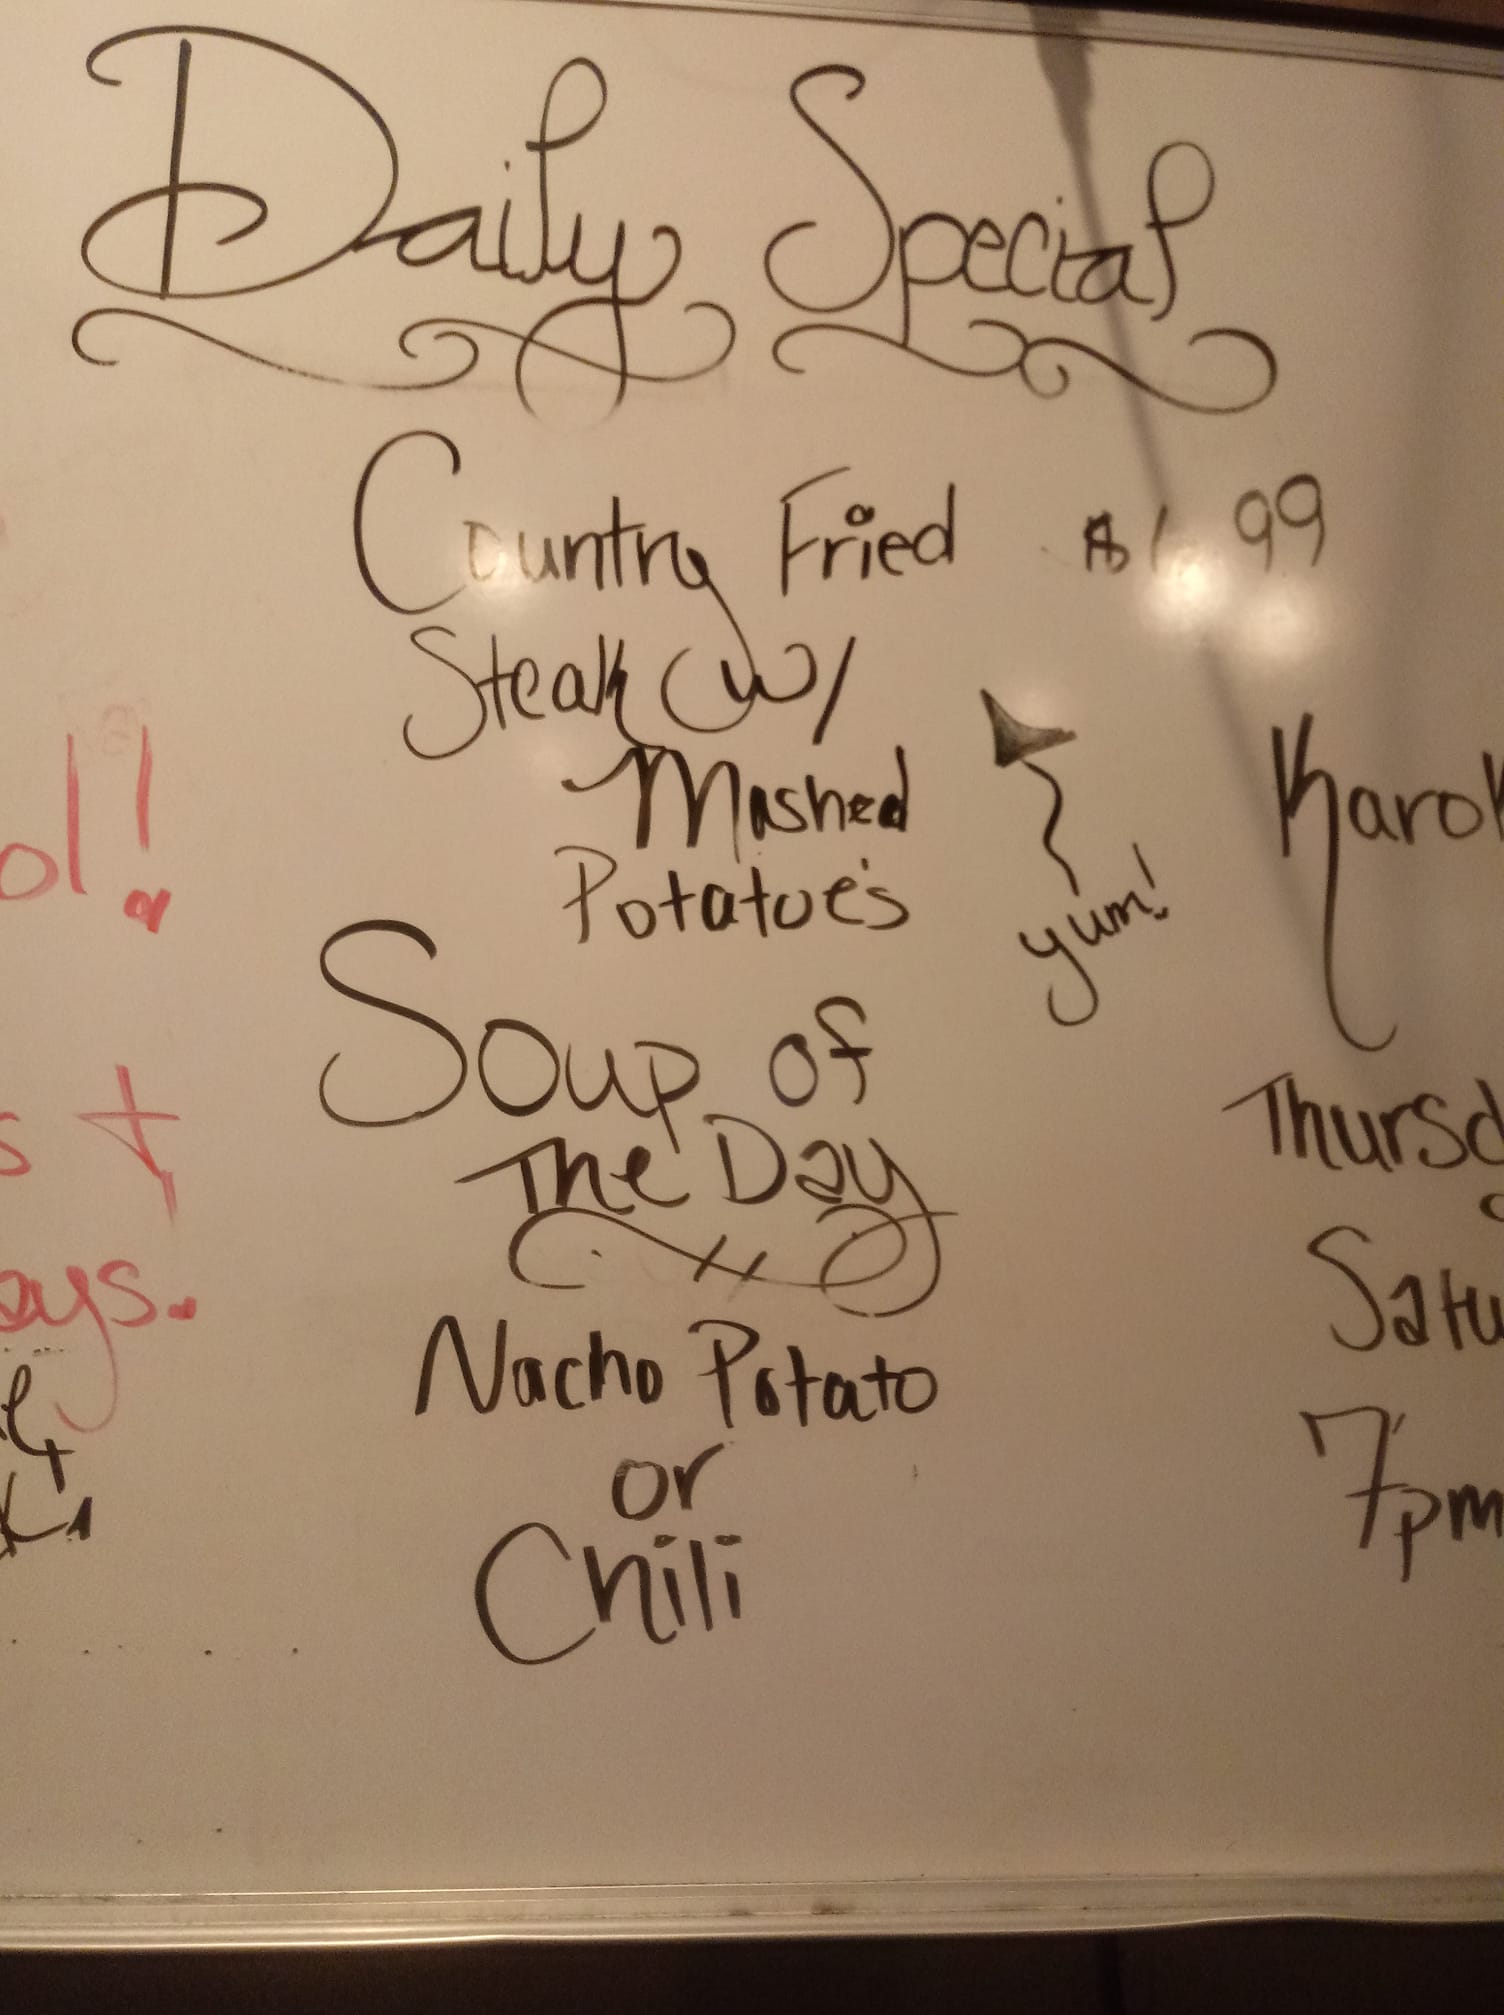 Daily Special
Country Fried
Steak w/
Mashed
Potatoe's
yum!
Soup of
The Day
Nacho Potato
or
Chili
ol!
s +
ays.
Karok
Thursd
Satu
7pm